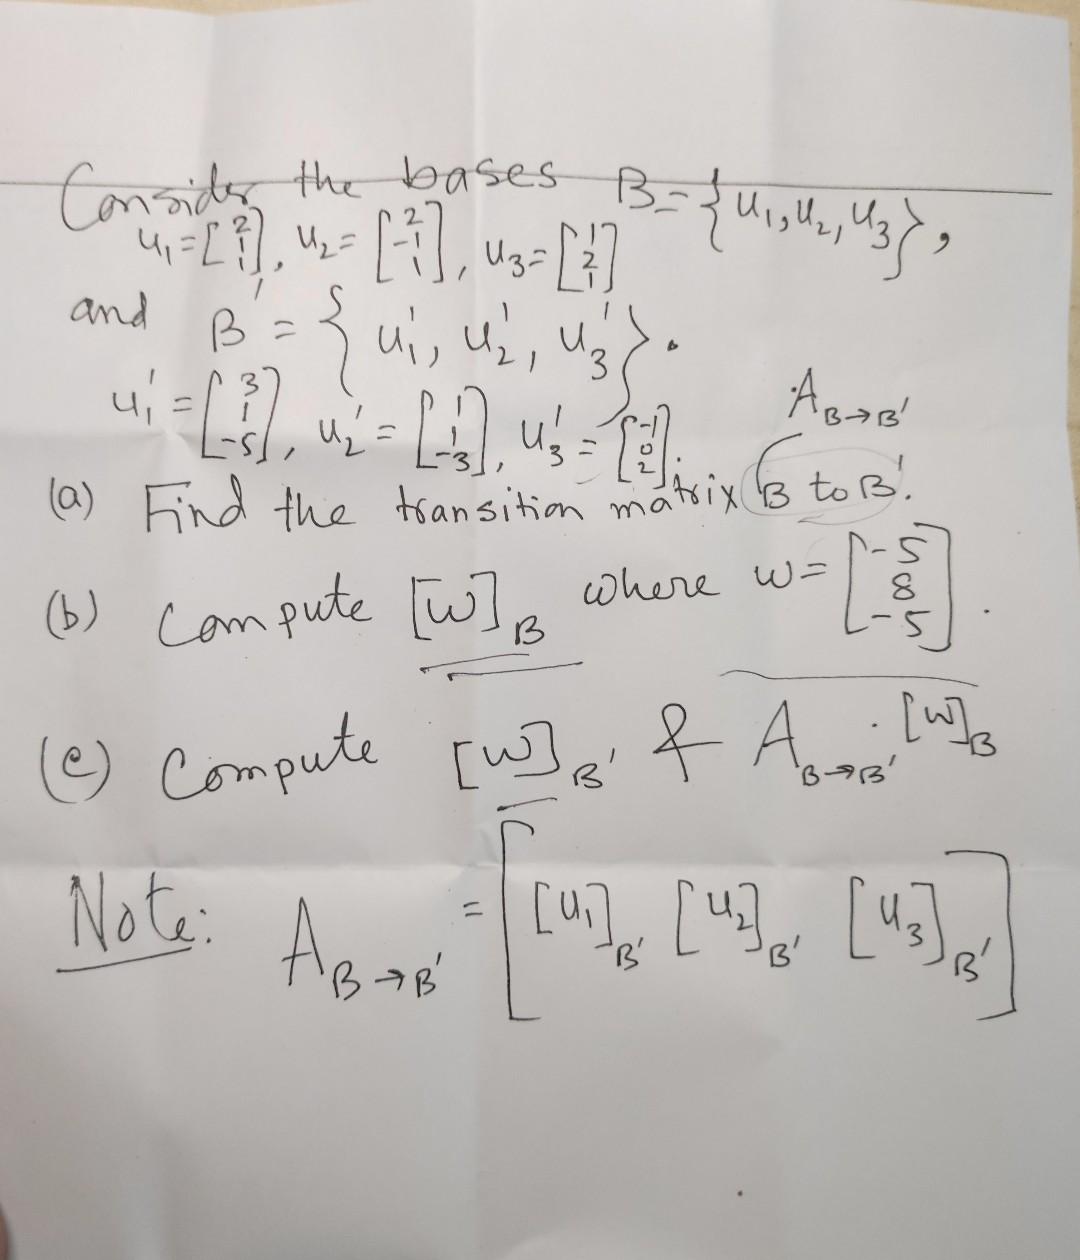 Consider the bases B = {u₁, u₂, u₃},
u₁ = [2 1 1], u₂ = [2 -1 1], u₃ = [1 2 1]
and B' = {u₁', u₂', u₃'}.
u₁' = [3 1 -5], u₂' = [1 1 -3], u₃' = [-1 0 2].
A_{B→B'}
(a) Find the transition matrix B to B'.
(b) Compute [w]_B where w = [-5 8 -5].
(c) Compute [w]_{B'} & A_{B→B'} · [w]_B
Note: A_{B→B'} = [[u₁]_{B'} [u₂]_{B'} [u₃]_{B'}]